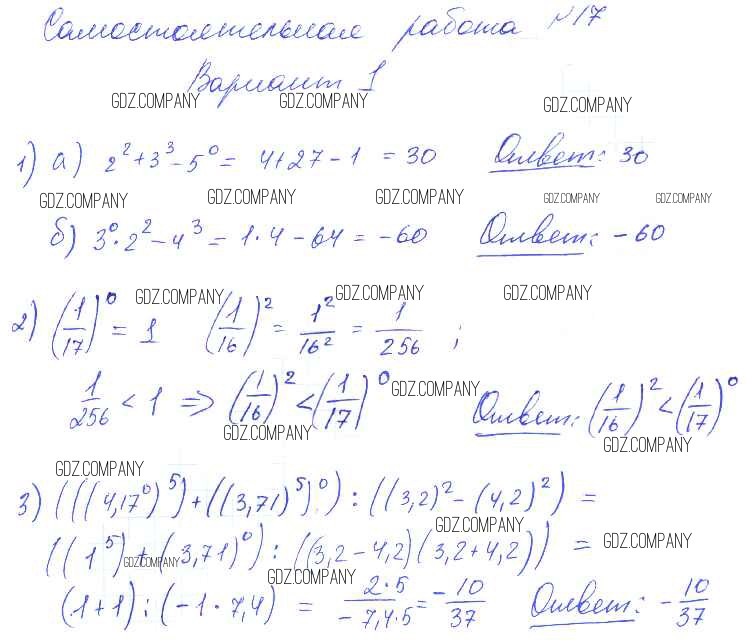 Самостоятельная работа №17
Вариант 1
GDZ.COMPANY GDZ.COMPANY GDZ.COMPANY
1) а) 2² + 3³ - 5⁰ = 4 + 27 - 1 = 30 Ответ: 30
GDZ.COMPANY GDZ.COMPANY GDZ.COMPANY GDZ.COMPANY GDZ.COMPANY
б) 3⁰ · 2² - 4³ = 1 · 4 - 64 = -60 Ответ: -60
GDZ.COMPANY GDZ.COMPANY GDZ.COMPANY
2) (1/17)⁰ = 1 (1/16)² = 1²/16² = 1/256 ;
GDZ.COMPANY
1/256 < 1 => (1/16)² < (1/17)⁰ Ответ: (1/16)² < (1/17)⁰
GDZ.COMPANY GDZ.COMPANY
GDZ.COMPANY
3) ((((4,17⁰)⁵) + ((3,71)⁵)⁰) : ((3,2)² - (4,2)²) =
GDZ.COMPANY
((1⁵) + (3,71)⁰) : ((3,2 - 4,2)(3,2 + 4,2)) =
GDZ.COMPANY GDZ.COMPANY GDZ.COMPANY
(1 + 1) : (-1 · 7,4) = 2·5/-7,4·5 = -10/37 Ответ: -10/37